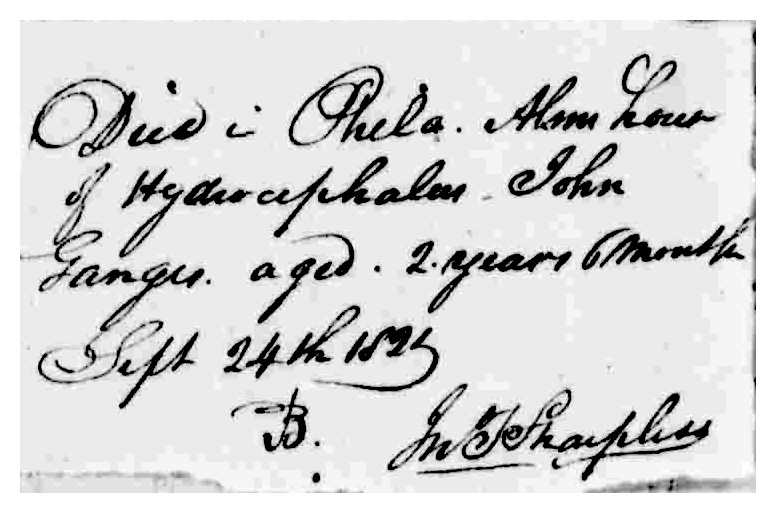 Died in Phila. Alms house
of Hydrocephalus John
Ganges. aged. 2. years 6 month
Sept 24th 1825
B.
Jn T Sharpless